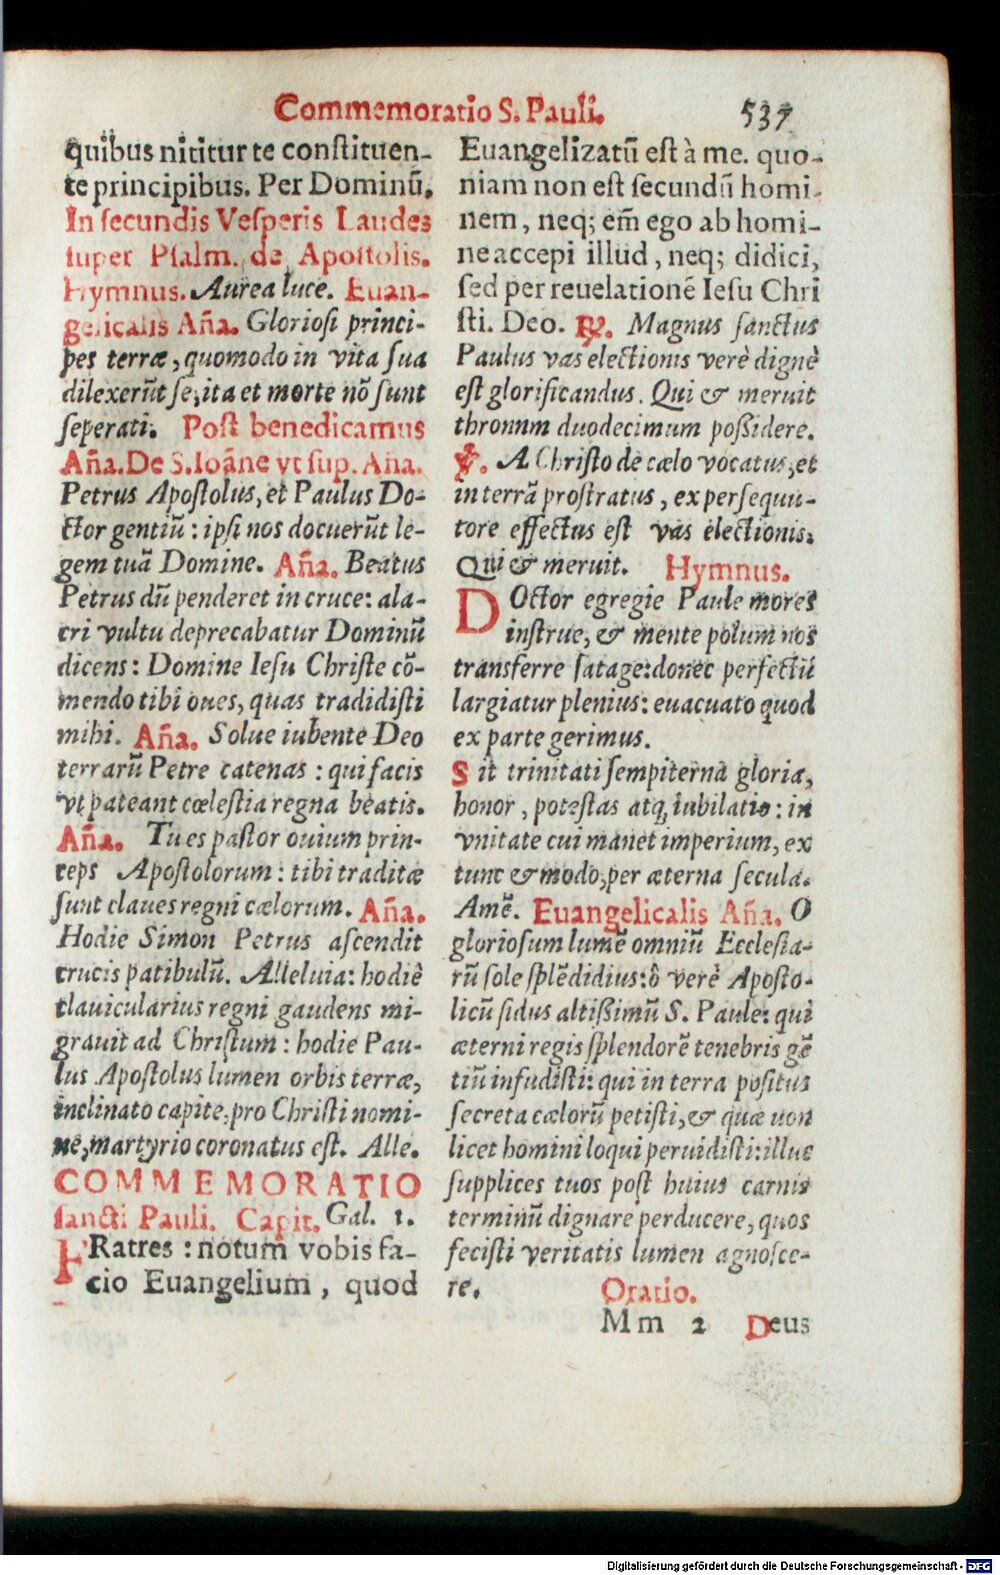 Commemoratio S. Pauli. 537
quibus nititur te constituen-
te principibus. Per Dominũ.
In secundis Vesperis Laudes
super Psalm. de Apostolis.
Hymnus. Aurea luce. Euan-
gelicalis Aña. Gloriosi princi-
pes terræ, quomodo in vita sua
dilexerũt se, ita et morte nõ sunt
seperati. Post benedicamus
Aña. De S. Ioãne vt sup. Aña.
Petrus Apostolus, et Paulus Do-
ctor gentiũ: ipsi nos docuerũt le-
gem tuã Domine. Aña. Beatus
Petrus dũ penderet in cruce: ala-
cri vultu deprecabatur Dominũ
dicens: Domine Iesu Christe cõ-
mendo tibi oues, quas tradidisti
mihi. Aña. Solue iubente Deo
terrarũ Petre catenas: qui facis
vt pateant cœlestia regna beatis.
Aña. Tu es pastor ouium prin-
ceps Apostolorum: tibi traditæ
sunt claues regni cælorum. Aña.
Hodie Simon Petrus ascendit
crucis patibulũ. Alleluia: hodiè
clauicularius regni gaudens mi-
grauit ad Christum: hodie Pau-
lus Apostolus lumen orbis terræ,
inclinato capite, pro Christi nomi-
ne, martyrio coronatus est. Alle.
COMMEMORATIO
sancti Pauli. Capit. Gal. 1.
FRatres: notum vobis fa-
cio Euangelium, quod
Euangelizatũ est à me. quo-
niam non est secundũ homi-
nem, neq; em̃ ego ab homi-
ne accepi illud, neq; didici,
sed per reuelationẽ Iesu Chri
sti. Deo. ℟. Magnus sanctus
Paulus vas electionis verè dignè
est glorificandus. Qui & meruit
thronnm duodecimum possidere.
℣. A Christo de cælo vocatus, et
in terrã prostratus, ex persequu-
tore effectus est vas electionis.
Qui & meruit. Hymnus.
DOctor egregie Paule mores
instrue, & mente polum nos
transferre satage: donec perfectũ
largiatur plenius: euacuato quod
ex parte gerimus.
Sit trinitati sempiterna gloria,
honor, potestas atq; iubilatio: in
vnitate cui manet imperium, ex
tunc & modo, per æterna secula.
Amẽ. Euangelicalis Aña. O
gloriosum lumẽ omniũ Ecclesia-
rũ sole splẽdidius: ô verè Aposto-
licũ sidus altissimũ S. Paule: qui
æterni regis splendorẽ tenebris gẽ
tiũ infudisti: qui in terra positus
secreta cælorũ petisti, & quæ uon
licet homini loqui peruidisti: illuc
supplices tuos post huius carnis
terminũ dignare perducere, quos
fecisti veritatis lumen agnosce-
re. Oratio.
Mm 2 Deus
Digitalisierung gefördert durch die Deutsche Forschungsgemeinschaft - DFG